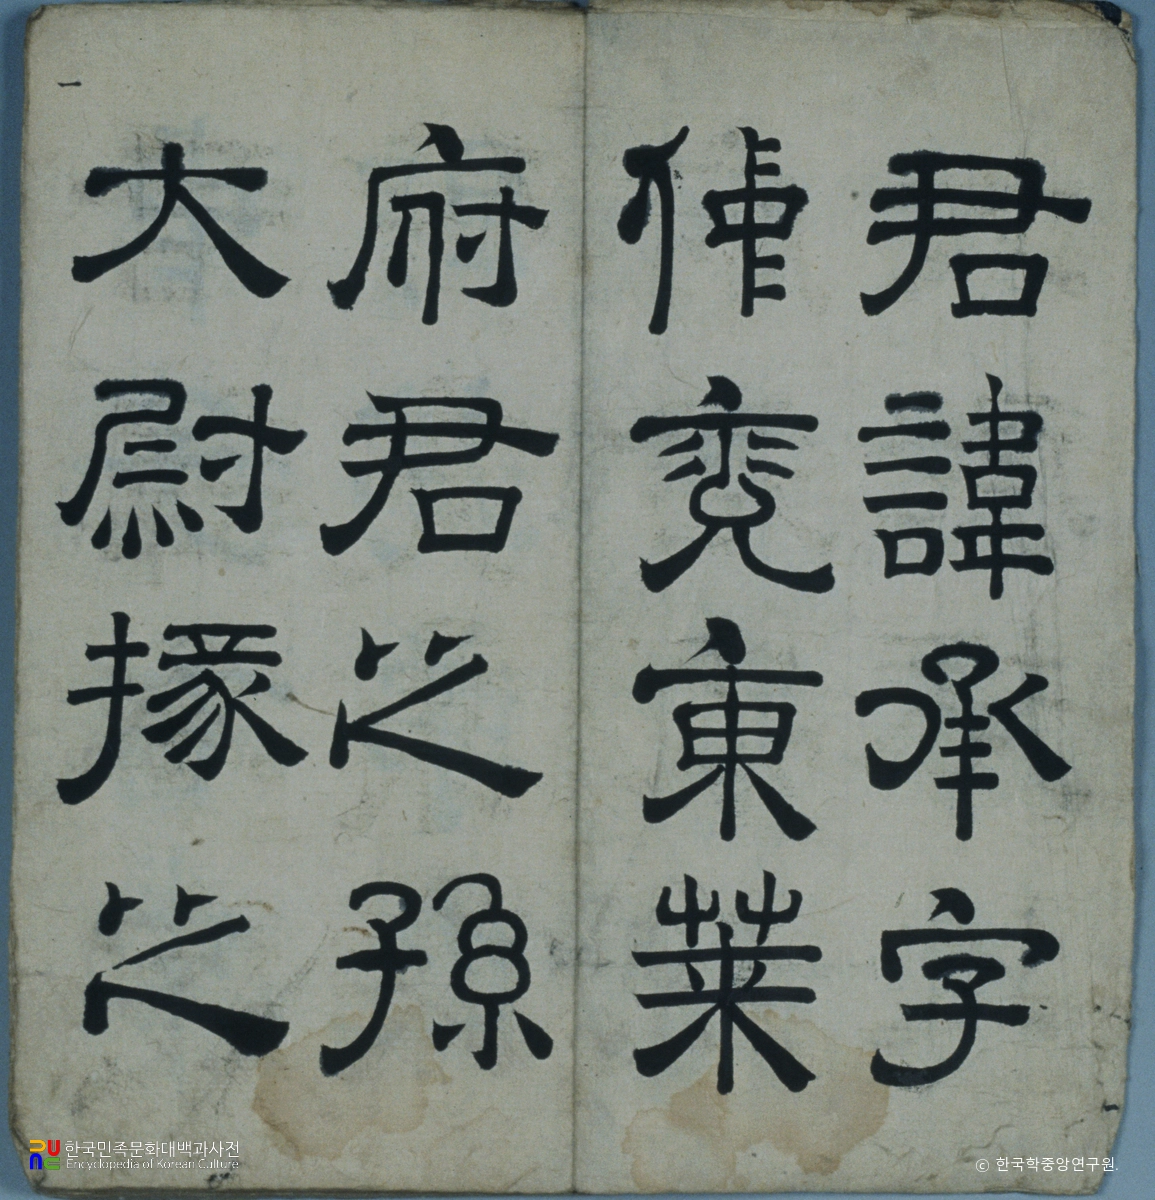 君諱承字
仲兗東萊
府君之孫
大尉掾之
一
한국민족문화대백과사전
Encyclopedia of Korean Culture
ⓒ 한국학중앙연구원.